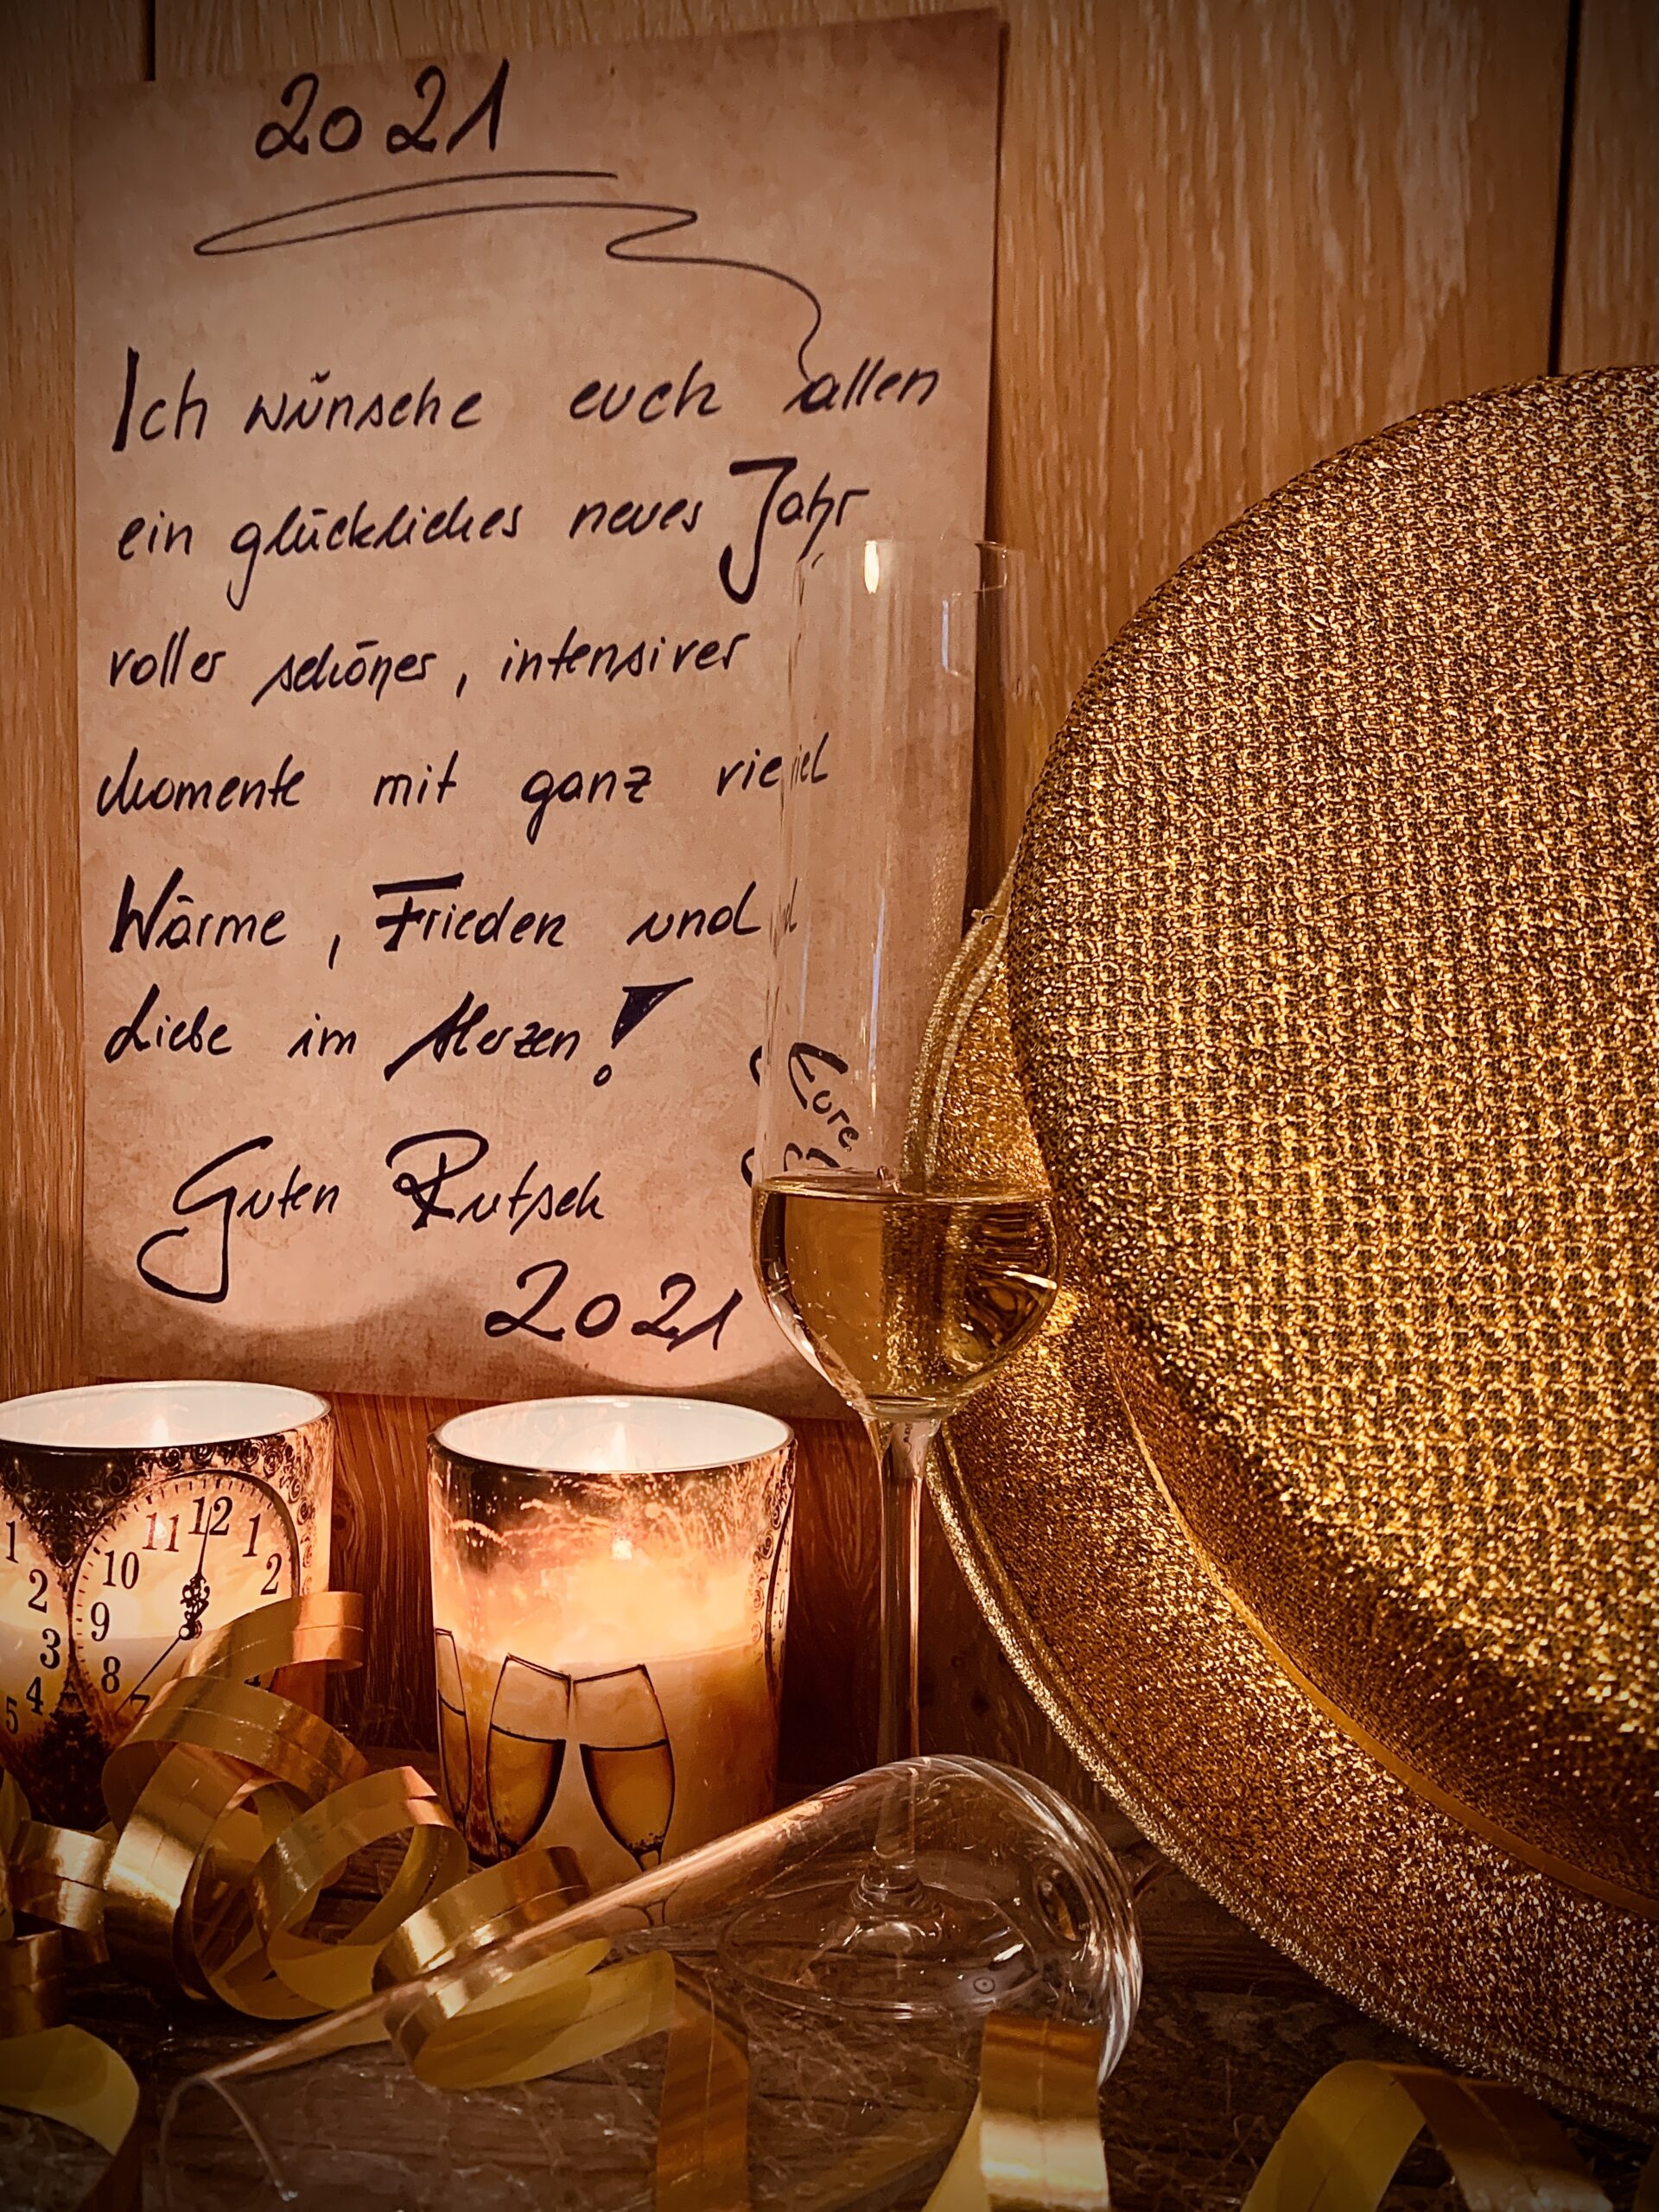 2021
Ich wünsche euch allen
ein glückliches neues Jahr
voller schöner, intensiver
Momente mit ganz viel
Wärme, Frieden und
Liebe im Herzen!
Guten Rutsch
2021
Eure
11 12 1
10 2
9
8
7
1
2
3
4
5